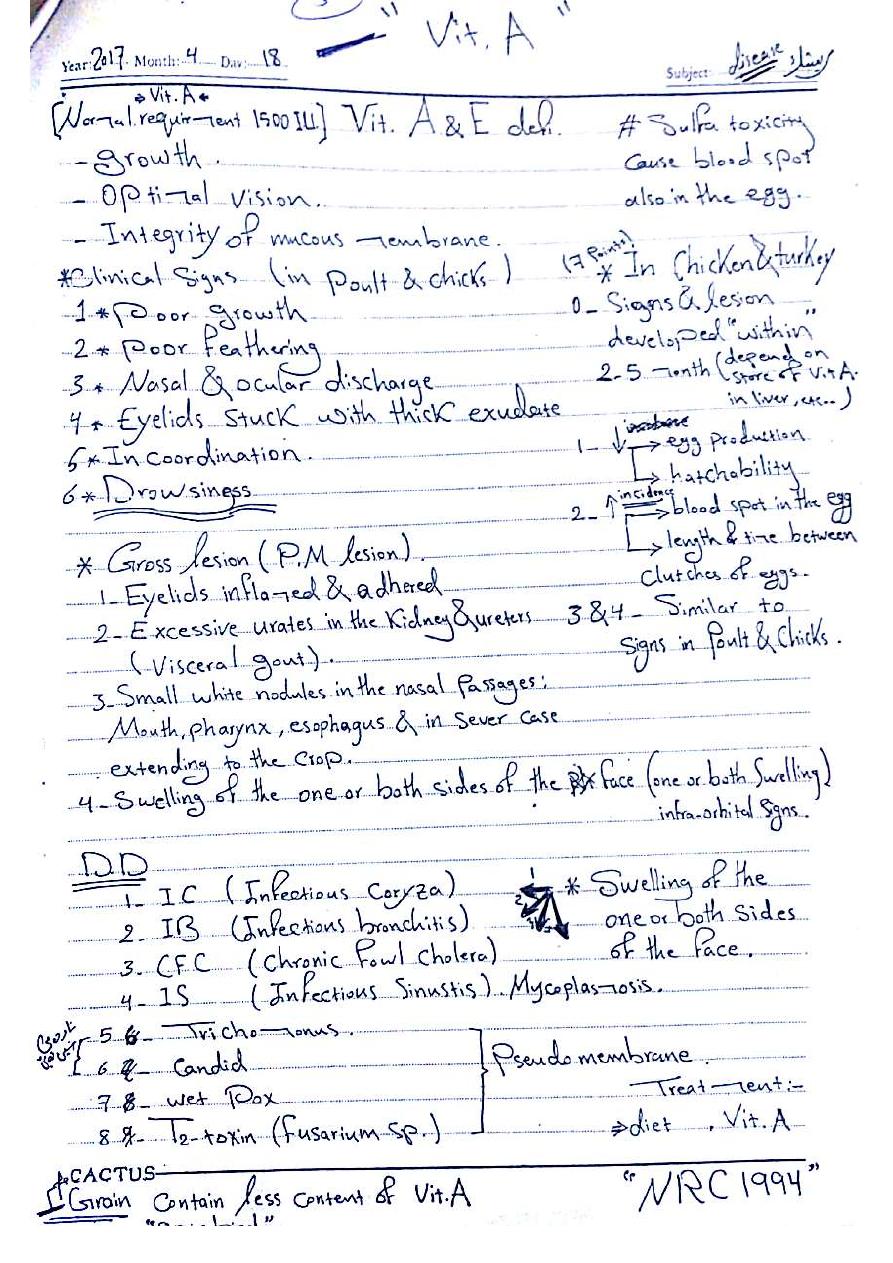 "Vit. A"
Year: 2017 Month: 4 Day: 18
Subject: disease
→ Vit. A ←
[Normal requirement 1500 IU] Vit. A & E defi.
- growth.
- Optimal vision.
- Integrity of mucous membrane.
*Clinical Signs (in Poult & chicks)
1* Poor growth
2* Poor feathering
3* Nasal & ocular discharge
4* Eyelids stuck with thick exudate
5* Incoordination.
6* Drowsiness
* Gross lesion (P.M lesion).
1- Eyelids inflamed & adhered
2- Excessive urates in the Kidney & ureters
(Visceral gout).
3- Small white nodules in the nasal Passages:
Mouth, pharynx, esophagus & in Sever Case
extending to the Crop.
4- Swelling of the one or both sides of the face (one or both Swelling)
infra-orbital Signs.
# Sulfa toxicity
Cause blood spot
also in the egg.
(7 Points)
* In Chicken & turkey
0- Siogns & lesion
developed "within"
2-5 month (depend on
store of Vit A.
in liver, etc...)
1- ↓ → egg production
→ hatchability
2- ↑ incidence → blood spot in the egg
→ length & time between
Clutches of eggs.
3 & 4 - Similar to
Signs in Poult & Chicks.
D.D
1- IC (Infectious Coryza)
2. IB (Infections bronchitis)
3. CFC (Chronic Fowl Cholera)
4- IS (Infectious Sinustis). Mycoplasmosis.
* Swelling of the
one or both Sides
of the face.
5 - Trichomonus.
6 - Candid
7 - wet Pox
8 - T2-toxin (fusarium sp.)
Pseudomembrane.
Treatment:-
⇒ diet, Vit. A
CACTUS
Grain Contain less content of Vit. A
"NRC 1994"